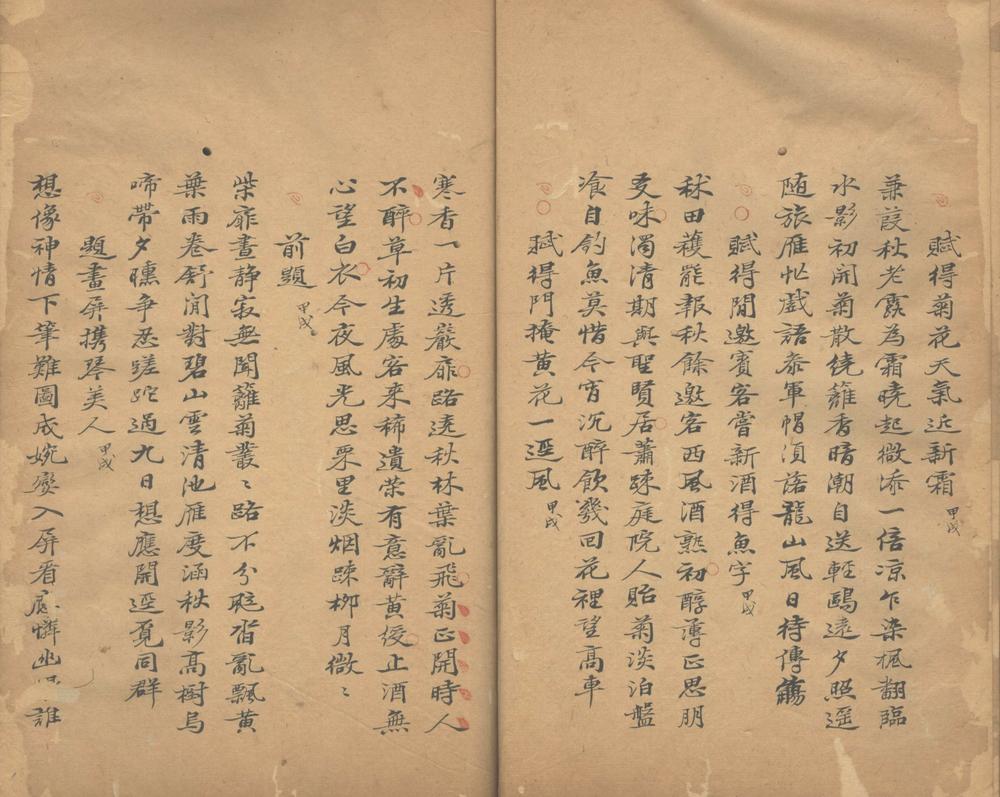 賦得菊花天氣近新霜 甲戌
蒹葭秋老露為霜曉起微添一倍凉乍染楓翻臨
水影初開菊散繞籬香暗潮自送輕鷗遠夕照遥
随旅雁忙戲語叅軍帽須落龍山風日待傳觴
賦得閒邀賓客嘗新酒得魚字 甲戌
秫田穫罷報秋餘邀客西風酒熟初醇薄正思朋
友味濁清期與聖賢居蕭踈庭院人貽菊淡泊盤
飡自釣魚莫惜今宵沉醉飲幾回花裡望高車
賦得門掩黄花一逕風 甲戌
寒香一片透巖扉路遠秋林葉亂飛菊正開時人
不醉草初生處客來稀遺荣有意辭黄綬止酒無
心望白衣今夜風光思栗里淡烟踈栁月微〻
前題 甲戌
柴扉晝静寂無聞籬菊叢〻路不分砌沓亂飄黄
葉雨卷舒閒對碧山雲清池雁度涵秋影髙樹烏
啼帶夕曛争忍蹉跎過九日想應開逕覓同群
題畫屏攜琴美人 甲戌
想像神情下筆難圖成婉孌入屏看應憐幽 誰